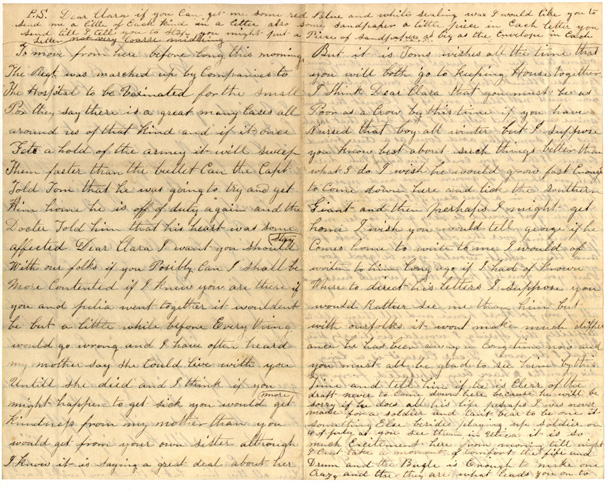 P.S. Dear Clara if you can get me some red Blue and white sealing wax I would like you to
send me a little of each kind in a letter also some sandpaper a little piece in each letter you
send till I tell you to stop you might put a Piece of Sandpaper as big as the Envelope in each
letter not very coarse
To move from here before long this morning
The Regt was marched up by Companies to
The Hospital to be Vaxinated for the small
Pox they say there is a great many Cases all
around us of that Kind and if it once
Gets a hold of the army it will sweep
Them faster than the bullet Can the Capt
Told Tom that he was going to try and get
Him home he is off of duty again and the
Docter Told him that his heart was some
affected Dear Clara I want you should stay
With our folks if you Posibly Can I shall be
More Contented if I knew you are there if
you and Julia went together it wouldent
be but a little while before Everything
would go wrong and I have often heard
my mother say she Could live with you
Untill she died and I think if you
might happen to get sick you would get more
Kindness from my mother than you
would get from your own sister although
I know it is saying a great deal about her
But it is Toms wishes all the time that
you will both go to keeping House together
I think Dear Clara that you must be as
Poor as a Crow by this time if you have
Nursed that boy all winter but I suppose
you know best about such things better than
what I do I wish he would grow fast Enough
to Come down here and lick the Southern
Giant and then perhaps I might get
home I wish you would tell george if he
Comes home to write to me I would of
writen to him long ago if I had of known
Where to direct his Letters I suppose you
would Rather see me than him but
with ourfolks it wont make much differ
ance he has been away so long
you must all be glad to see him by this
Time and tell him if he is Clere of the
draft never to Come down here because he will be
sorry if he does all his life perhaps I was never
made for a soldier and cant bear to be one it is
something Else besides playing up soldier
as you see them in Utica it is so
much Excitement here from morning till night
I Cant take a moments of comfort the fife and
Drum and the Bugle is Enough to make one
Crazy and the they are what leads you on to